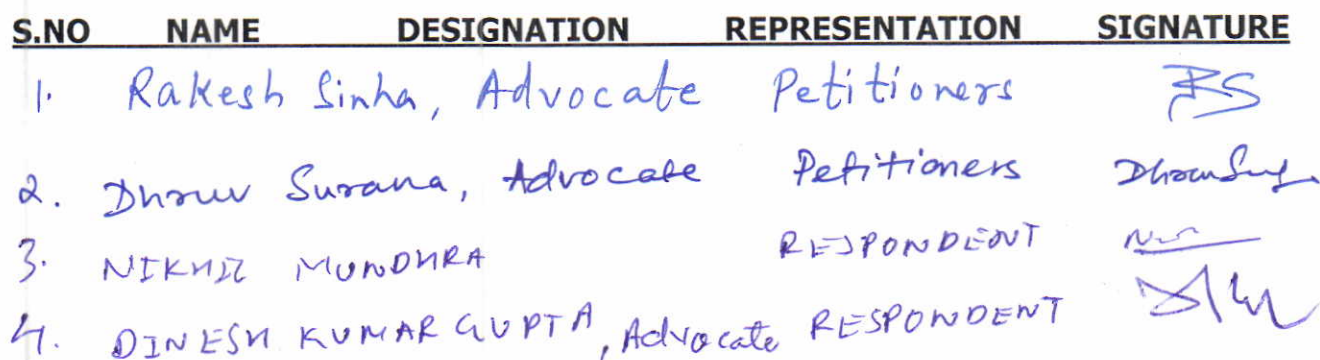 S.NO NAME DESIGNATION REPRESENTATION SIGNATURE
1. Rakesh Sinha, Advocate Petitioners RS
2. Dhruv Surana, Advocate Petitioners
3. NIKHIL MUNDHRA RESPONDENT
4. DINESH KUMAR GUPTA, Advocate RESPONDENT